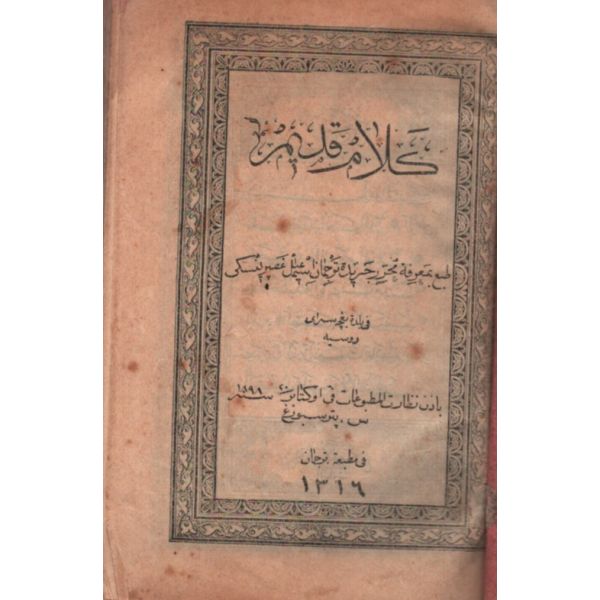 كلام قديم
طبع بمعرفة محرر جريدة ترجمان اسمعيل غصپرينسكى
فى بلدة بغچه سراى
روسيه
باذن نظارت المطبوعات فى اوكتابر سنه ١٨٩٨
س. پترسبورغ
فى مطبعة ترجمان
١٣١٦